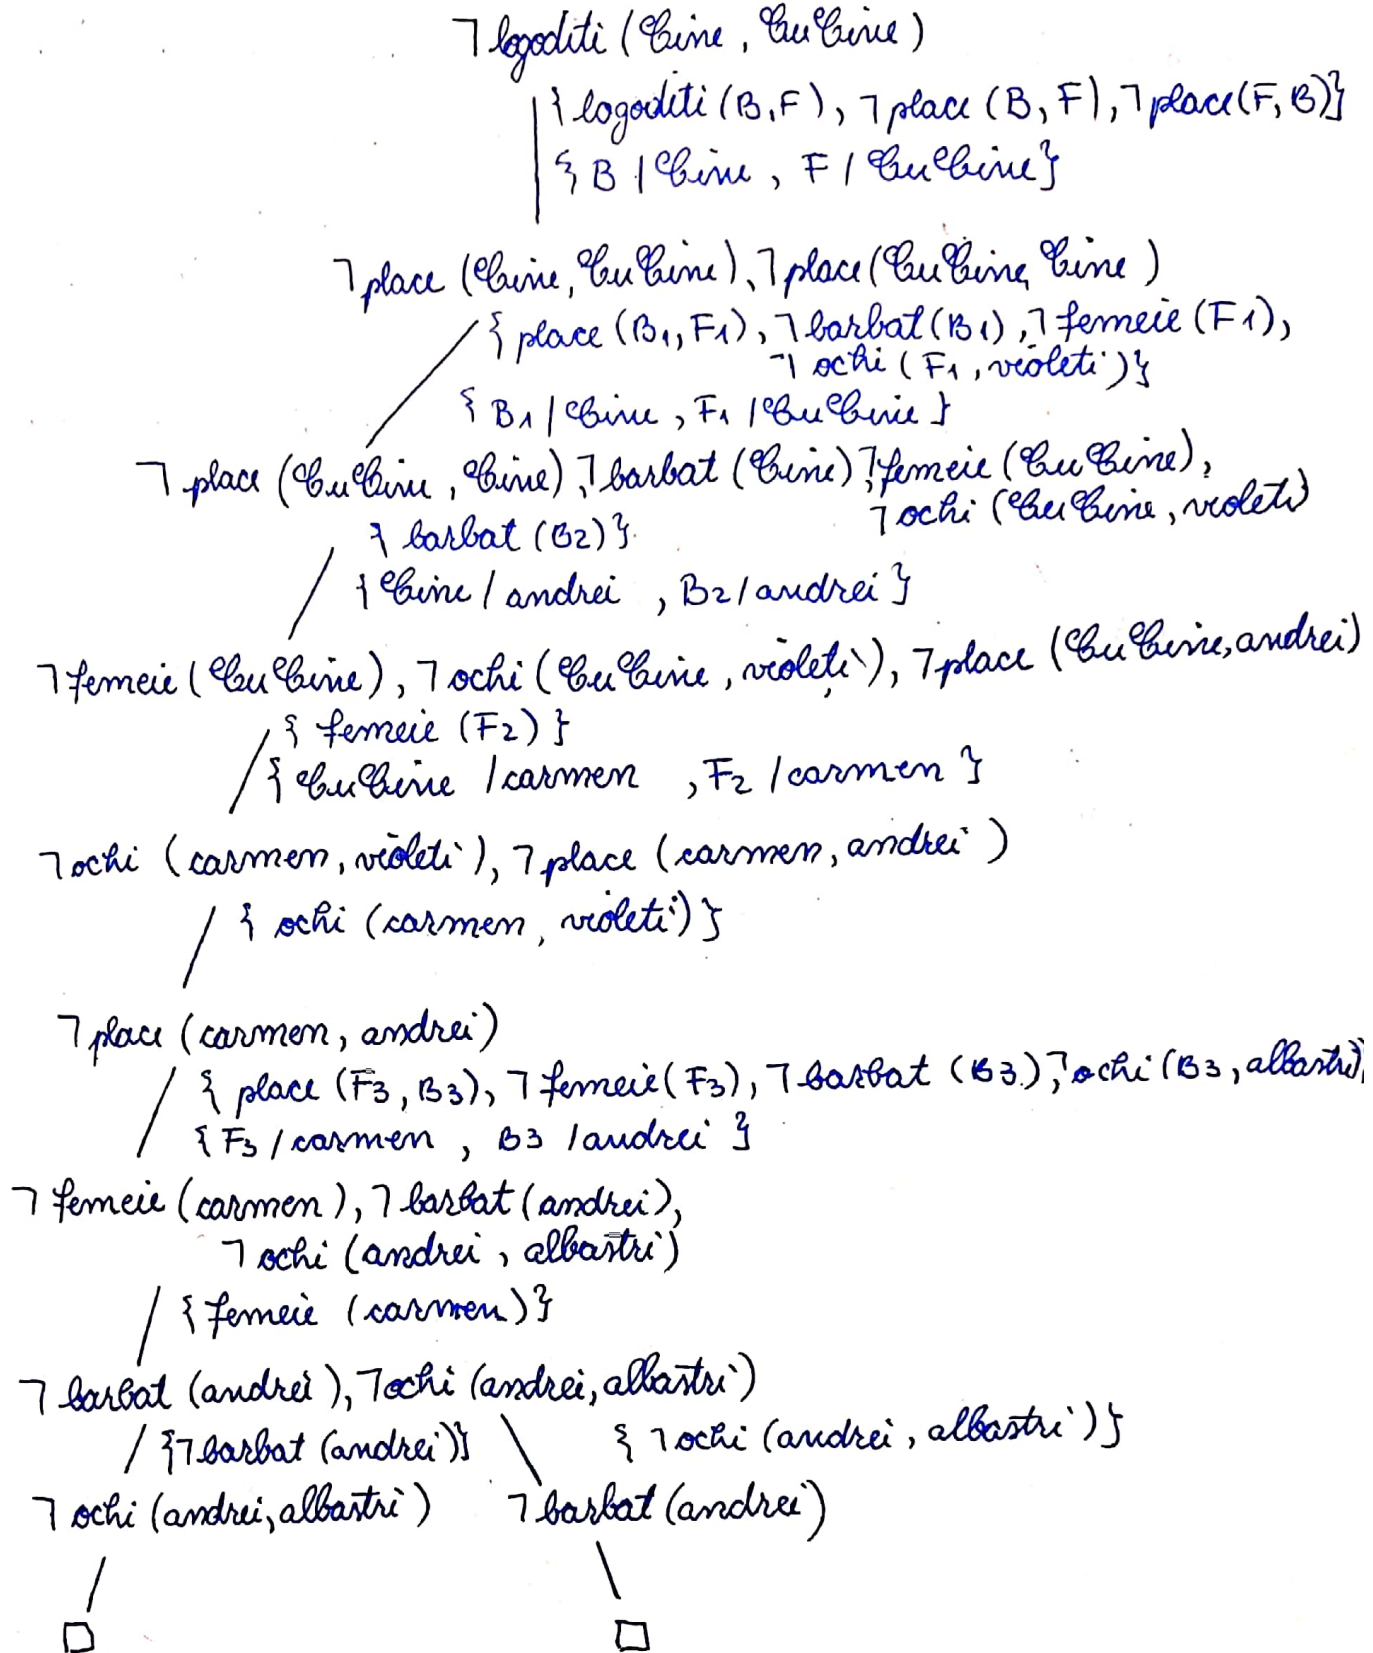 ⌐logoditi (Cine, CuCine)
{logoditi (B,F), ⌐place (B, F), ⌐place(F, B)}
{B / Cine, F / CuCine}
⌐place (Cine, CuCine), ⌐place (CuCine, Cine)
{place (B1, F1), ⌐barbat (B1), ⌐femeie (F1),
⌐ochi (F1, violeti)}
{B1 / Cine, F1 / CuCine}
⌐place (CuCine, Cine), ⌐barbat (Cine), ⌐femeie (CuCine),
⌐ochi (CuCine, violeti)
{barbat (B2)}
{Cine / andrei, B2 / andrei}
⌐femeie (CuCine), ⌐ochi (CuCine, violeti), ⌐place (CuCine, andrei)
{femeie (F2)}
{CuCine / carmen, F2 / carmen}
⌐ochi (carmen, violeti), ⌐place (carmen, andrei)
{ochi (carmen, violeti)}
⌐place (carmen, andrei)
{place (F3, B3), ⌐femeie (F3), ⌐barbat (B3), ⌐ochi (B3, albastri)}
{F3 / carmen, B3 / andrei}
⌐femeie (carmen), ⌐barbat (andrei),
⌐ochi (andrei, albastri)
{femeie (carmen)}
⌐barbat (andrei), ⌐ochi (andrei, albastri)
{⌐barbat (andrei)} {⌐ochi (andrei, albastri)}
⌐ochi (andrei, albastri) ⌐barbat (andrei)
□ □